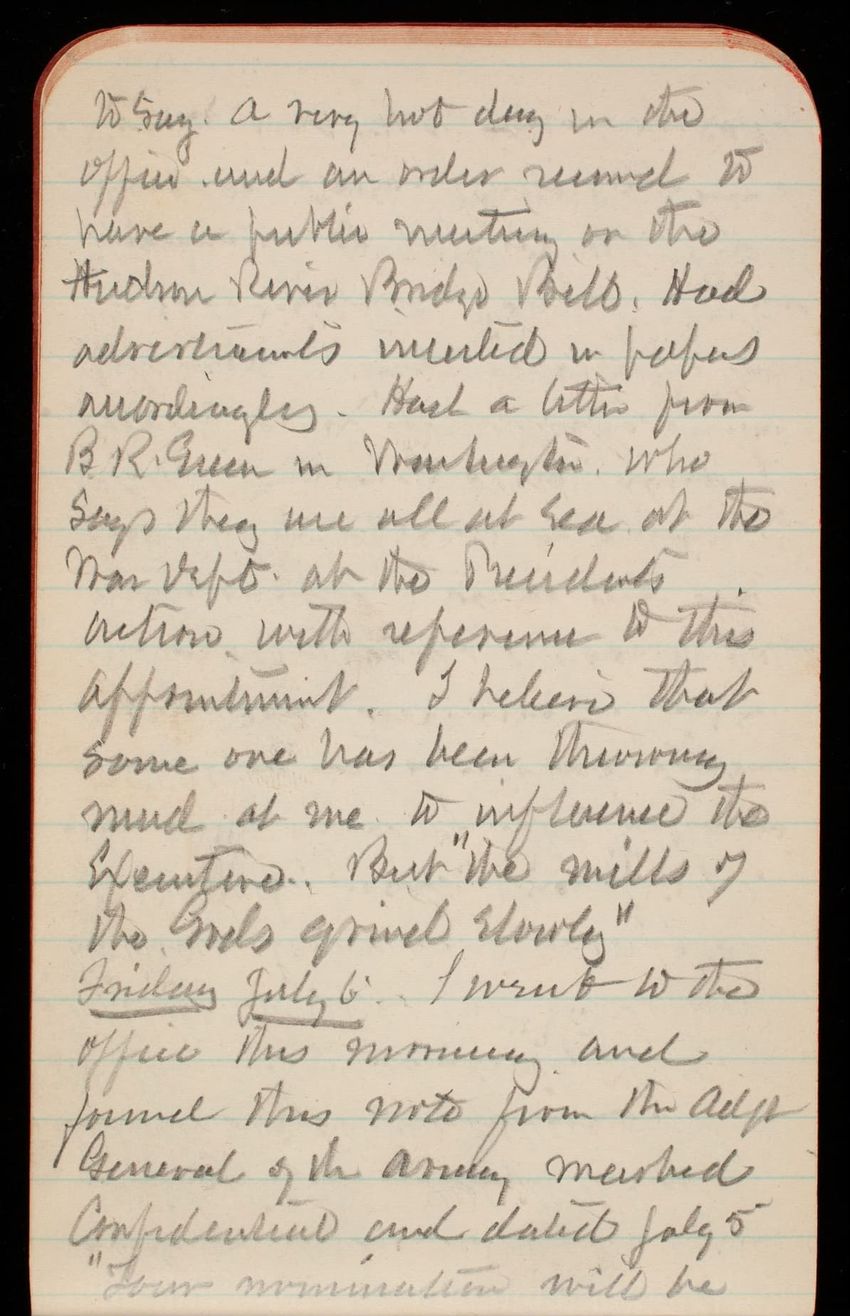 to say. A very hot day in the
office and an order received to
have a public meeting on the
Hudson River Bridge Bill. Had
advertisements inserted in papers
accordingly. Had a letter from
B. R. Green in Washington. who
says they are all at sea at the
War Dept. at the Presidents
action with reference to this
appointment. I believe that
some one has been throwing
mud at me to influence the
Executive. But "the mills of
the Gods grind slowly"
Friday July 6. I went to the
office this morning and
found this note from the Adjt
General of the Army marked
Confidential and dated July 5
"Your nomination will be